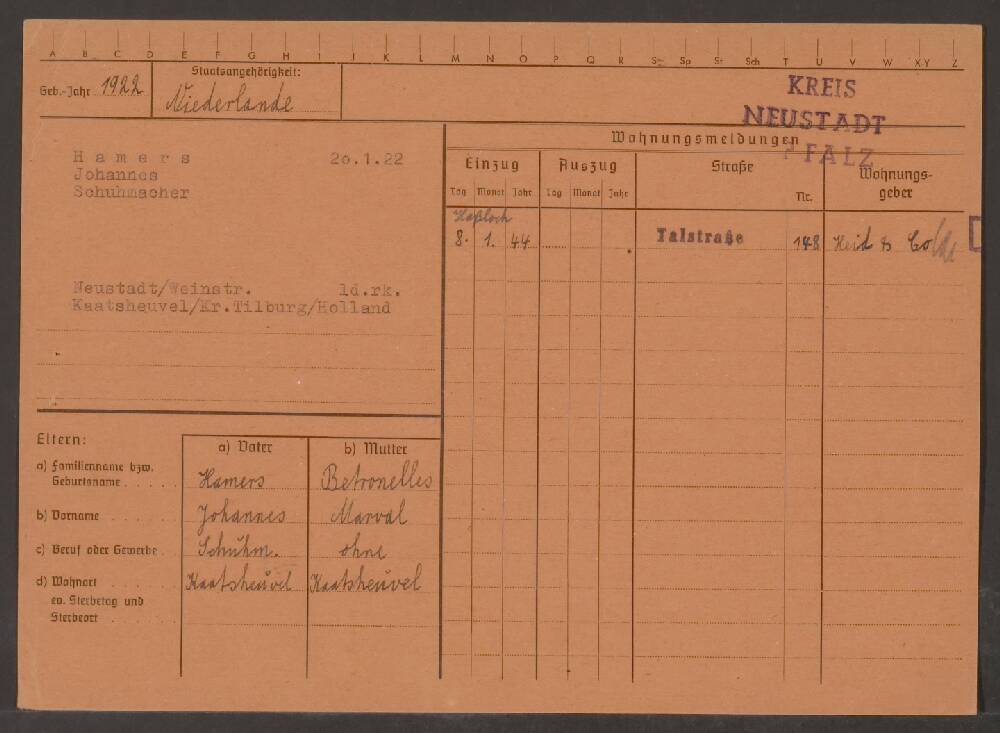 A B C D E F G H I J K L M N O P Q R S Sp St Sch T U V W XY Z
Geb.-Jahr 1922
Staatsangehörigkeit:
Niederlande
KREIS
NEUSTADT
PFALZ
Hamers 20.1.22
Johannes
Schuhmacher
Neustadt/Weinstr. ld.rk.
Kaatsheuvel/Kr.Tilburg/Holland
Wohnungsmeldungen
Einzug Auszug Straße Wohnungs-
geber
Tag Monat Jahr Tag Monat Jahr Nr.
Haßloch
8. 1. 44 Talstraße 148 Heid & Co
Eltern:
a) Vater b) Mutter
a) Familienname bzw.
Geburtsname Hamers Betronelles
b) Vorname Johannes Marval
c) Beruf oder Gewerbe Schuhm. ohne
d) Wohnort Kaatsheuvel Kaatsheuvel
ev. Sterbetag und
Sterbeort